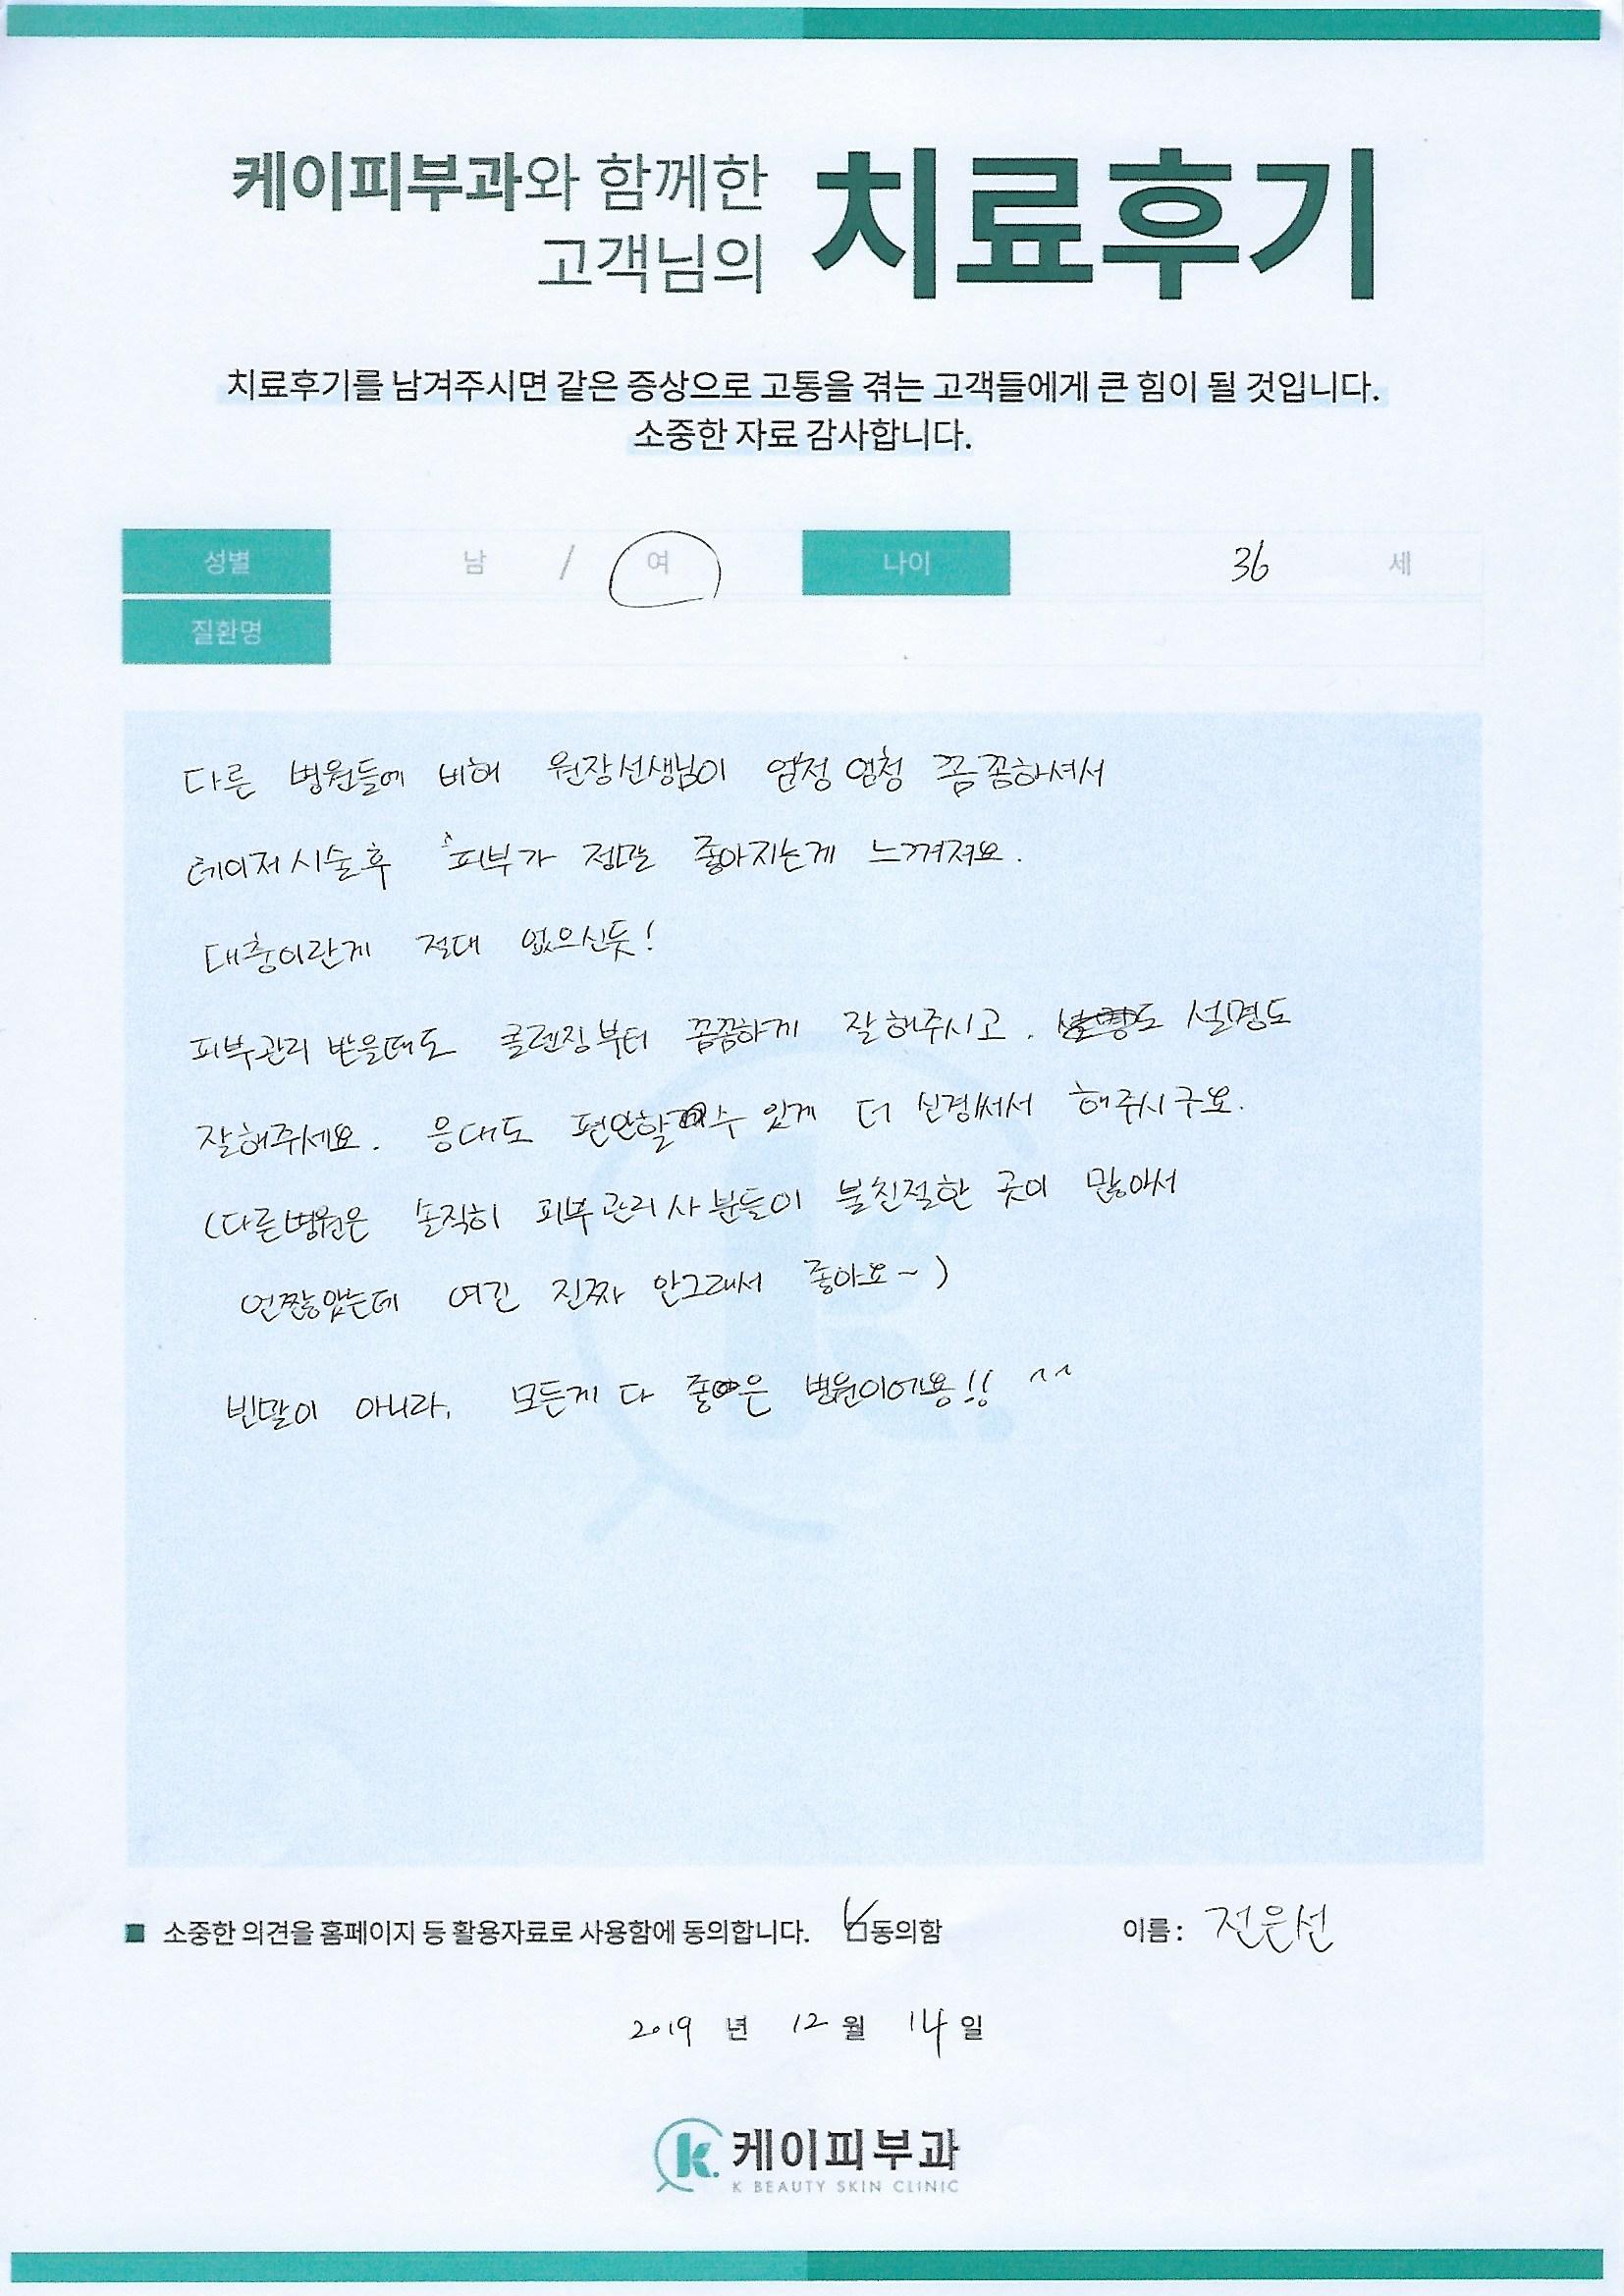 케이피부과와 함께한
고객님의
치료후기
치료후기를 남겨주시면 같은 증상으로 고통을 겪는 고객들에게 큰 힘이 될 것입니다.
소중한 자료 감사합니다.
성별 남 / 여 나이 36 세
질환명
다른 병원들에 비해 원장선생님이 엄청 엄청 꼼꼼하셔서
레이저시술후 피부가 정말 좋아지는게 느껴져요.
대충이란게 절대 없으신듯!
피부관리 받을때도 클렌징부터 꼼꼼하게 잘해주시고. 설명도
잘해주세요. 응대도 편안할수 있게 더 신경써서 해주시구요.
(다른병원은 솔직히 피부관리사분들이 불친절한 곳이 많아서
언짢았는데 여긴 진짜 안그래서 좋아요~)
빈말이 아니라, 모든게 다 좋은 병원이에용!! ^^
■ 소중한 의견을 홈페이지 등 활용자료로 사용함에 동의합니다. 동의함 이름: 전은선
2019 년 12 월 14 일
k. 케이피부과
K BEAUTY SKIN CLINIC